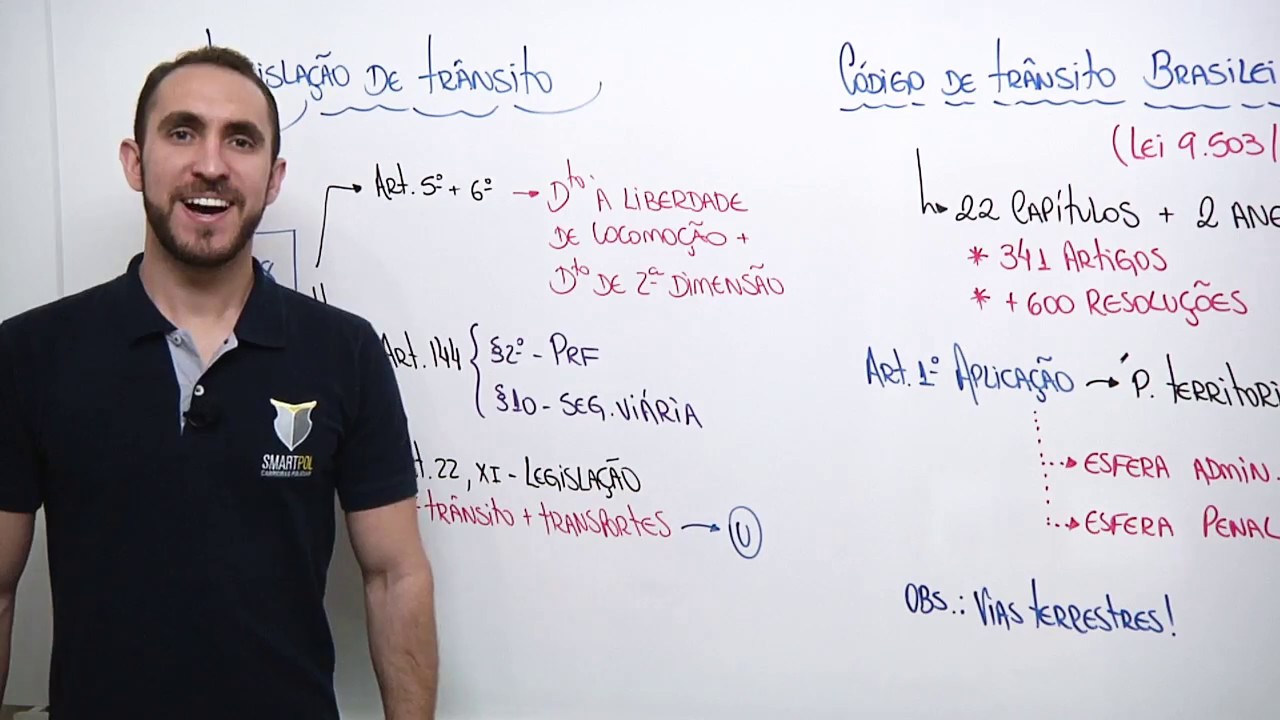 ISLAÇÃO DE TRÂNSITO
Art. 5º + 6º → Dto. À LIBERDADE
DE LOCOMOÇÃO +
Dto DE 2ª DIMENSÃO
Art. 144 { §2º - PRF
§10 - SEG. VIÁRIA
t. 22, XI - LEGISLAÇÃO
TRÂNSITO + TRANSPORTES → U
CÓDIGO DE TRÂNSITO BRASILEI
(LEI 9.503/
22 CAPÍTULOS + 2 ANE
* 341 ARTIGOS
* + 600 RESOLUÇÕES
Art. 1º APLICAÇÃO → P. TERRITORI
ESFERA ADMIN.
ESFERA PENAL
OBS.: VIAS TERRESTRES!
SMARTPOL